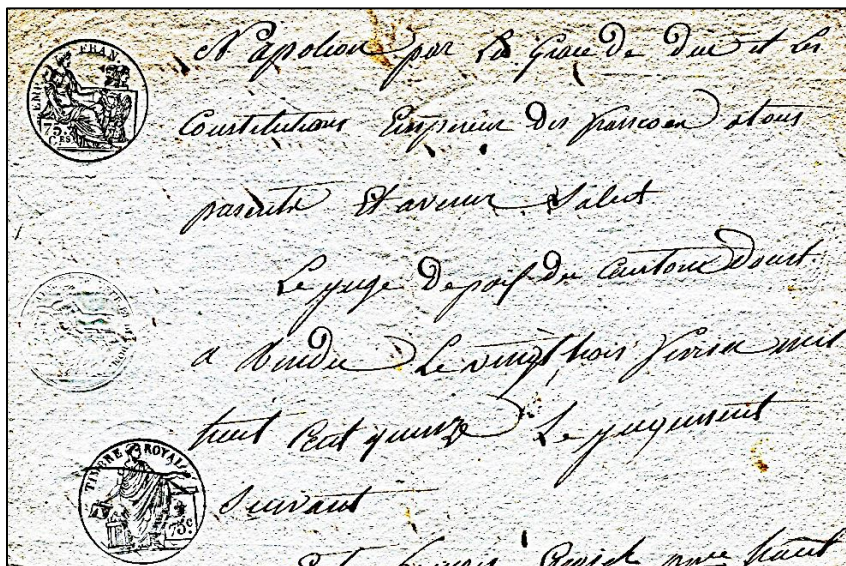 EMP. FRAN
75 CES
Napoleon par La Grace de dieu et Les
Constitutions Empereur Des francoen atous
presents Et avenir Salut
Le juge De paix du Canton Doust
a Rendu Le vingt trois fevrier mil
huit Cent quinze Le jugement
Suivant
TIMBRE ROYAL
75c